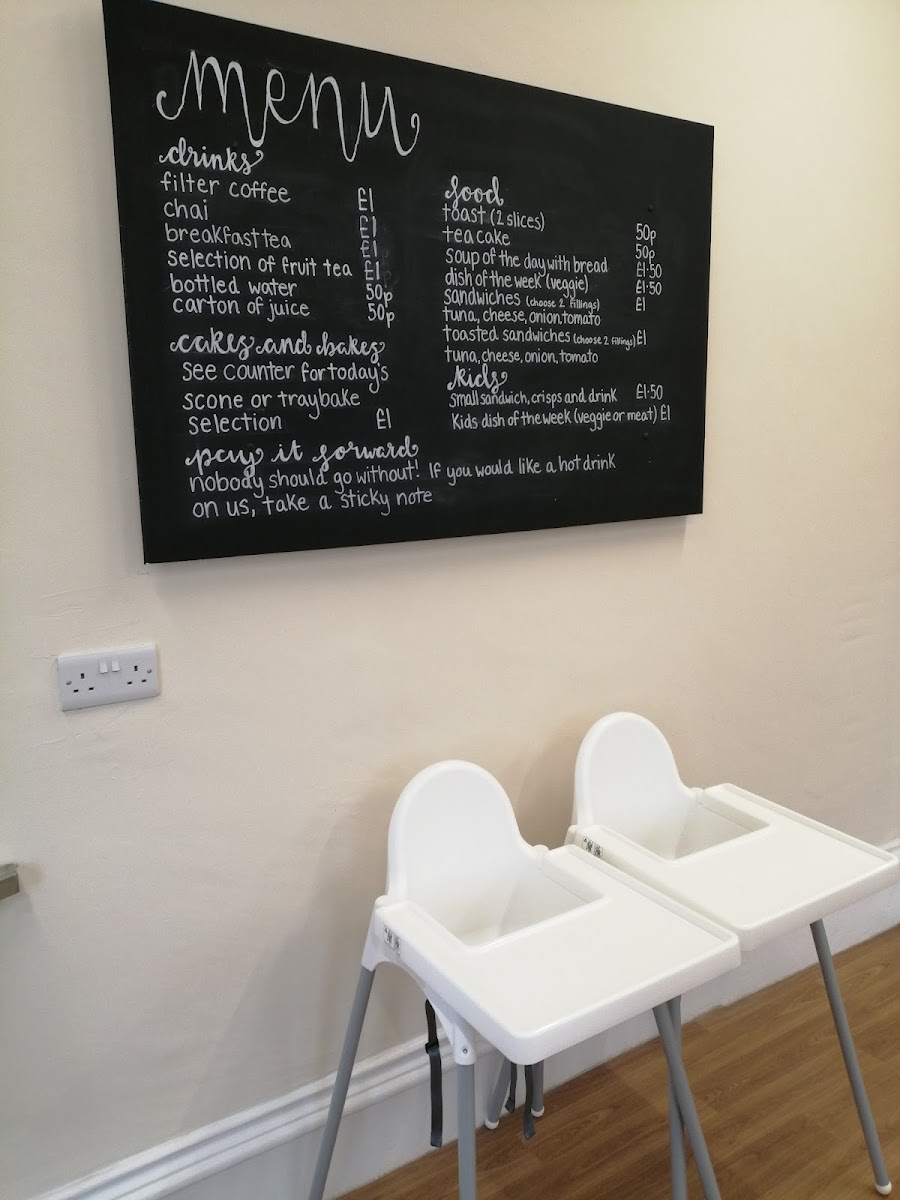 menu
drinks
filter coffee £1
chai £1
breakfast tea £1
selection of fruit tea £1
bottled water 50p
carton of juice 50p
cakes and bakes
see counter for today's
scone or traybake
selection £1
pay it forward
nobody should go without! If you would like a hot drink
on us, take a sticky note
food
toast (2 slices) 50p
teacake 50p
soup of the day with bread £1·50
dish of the week (veggie) £1·50
sandwiches (choose 2 fillings) £1
tuna, cheese, onion, tomato
toasted sandwiches (choose 2 fillings) £1
tuna, cheese, onion, tomato
kids
small sandwich, crisps and drink £1·50
Kids dish of the week (veggie or meat) £1